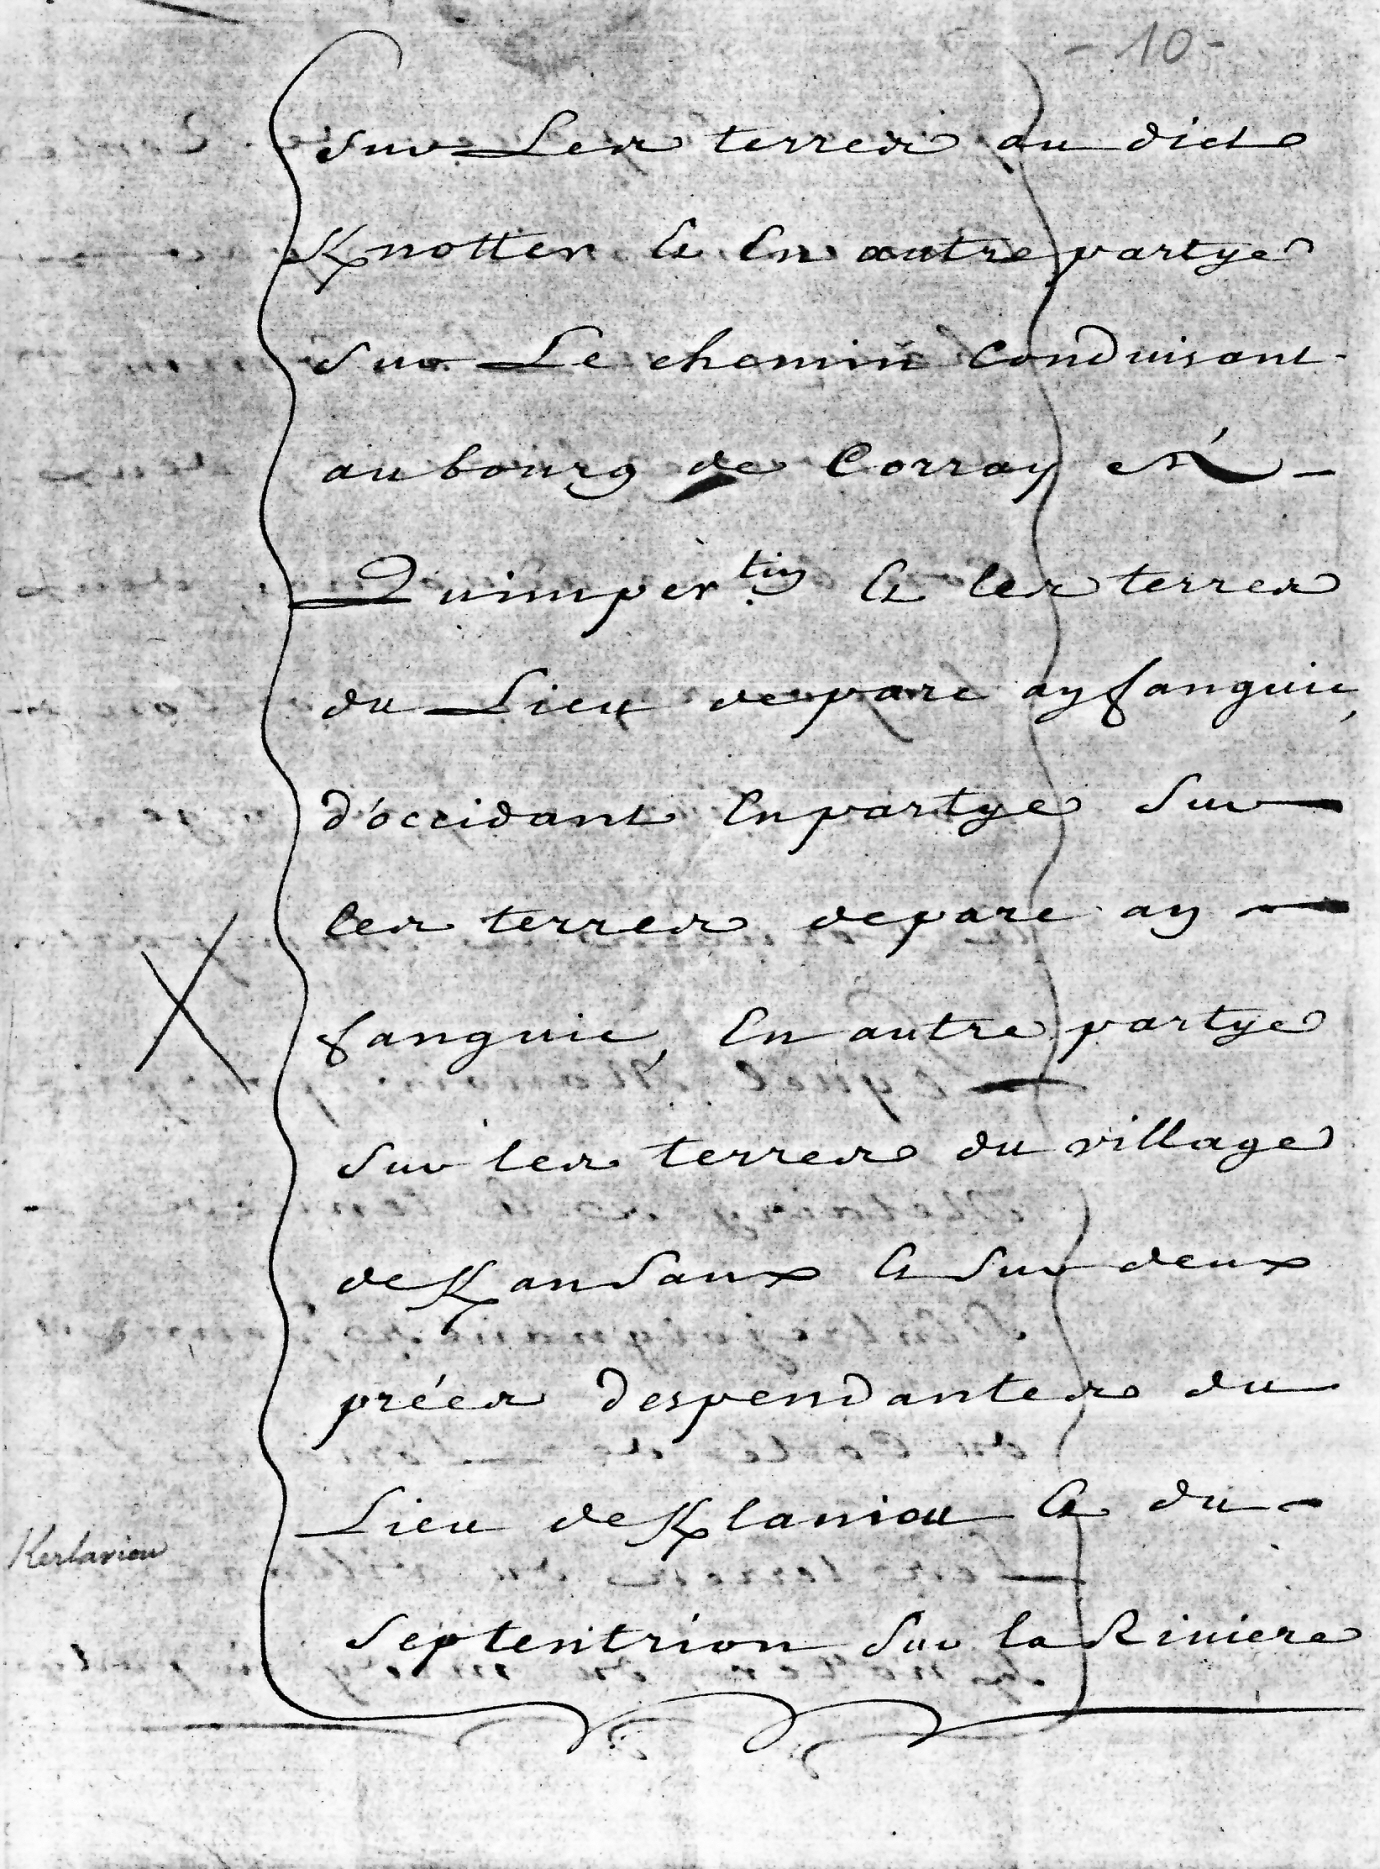 - 10 -
sur Les terres au dict
Knotter & En autre partye
sur Le chemin Conduisant
au bourg de Corray à
Quimper tin & les terres
du Lieu de parc ay fanguic,
d'occidant En partye sur
les terres de parc ay
fanguic, En autre partye
sur les terres du village
de Kansaux & sur deux
préés despendantes du
Lieu de Klaniou & du
Kerlaniou
septentrion sur la Riviere